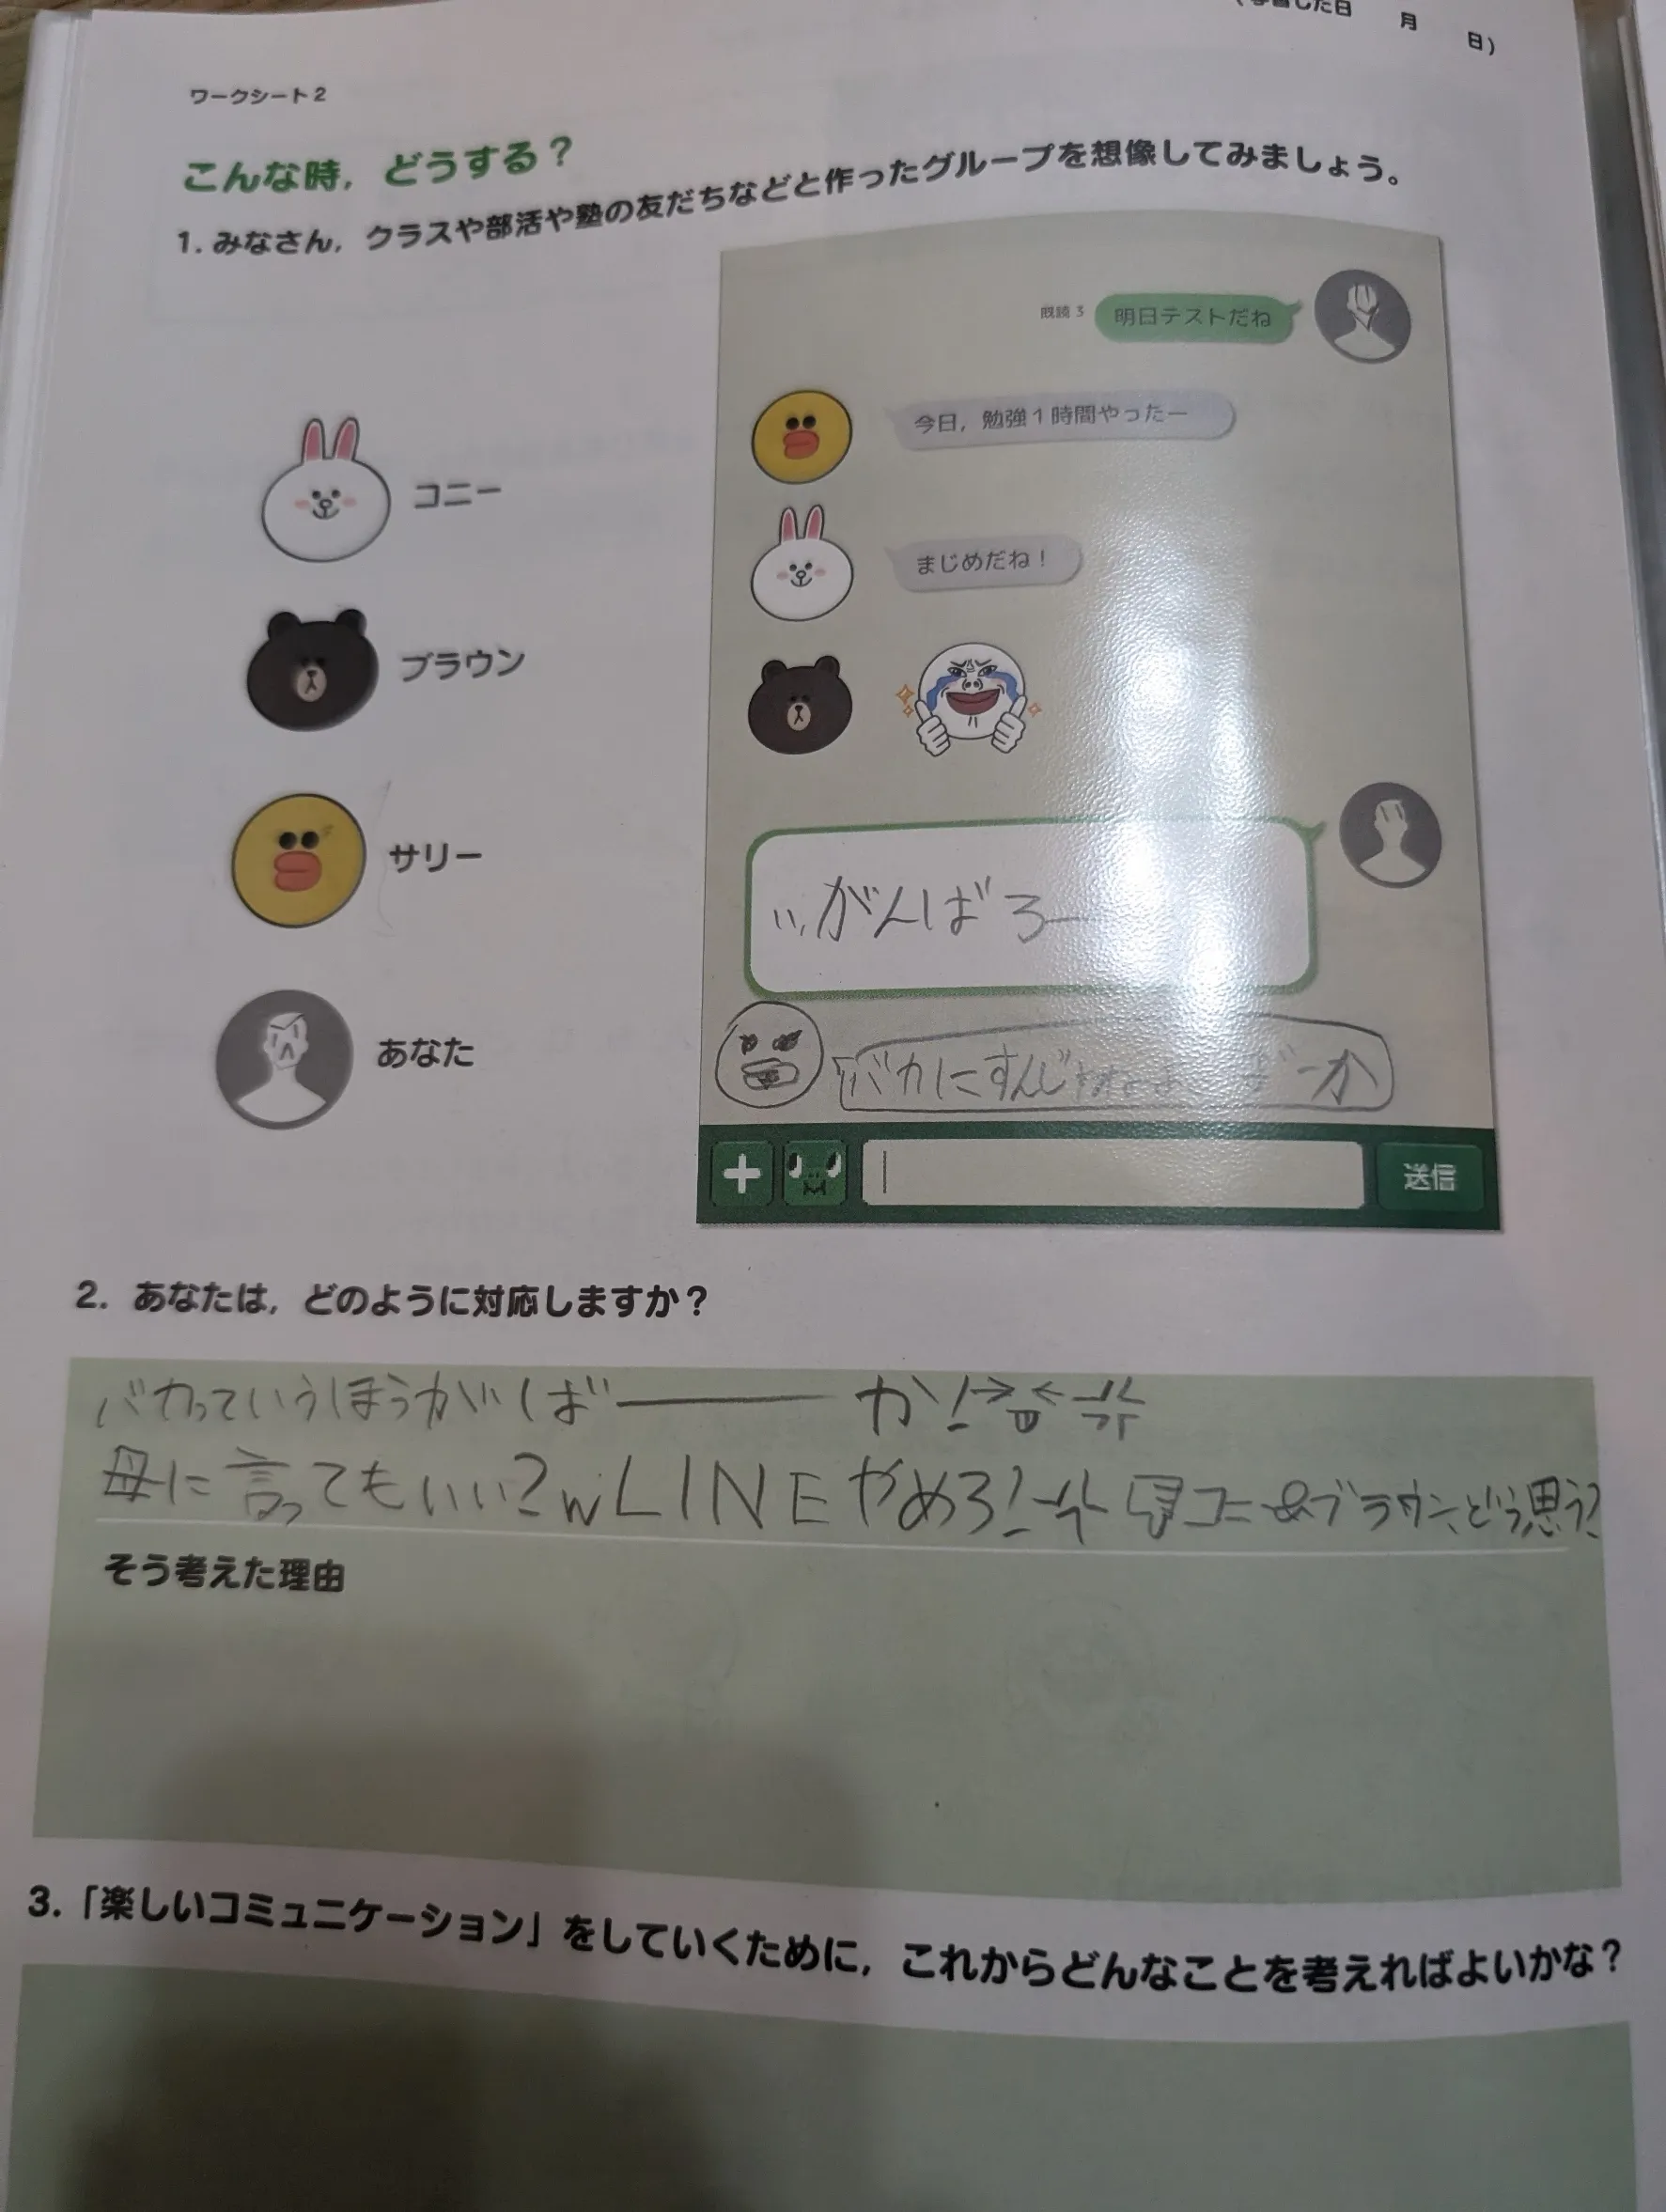 した日 月 日)
ワークシート2
こんな時，どうする？
1. みなさん，クラスや部活や塾の友だちなどと作ったグループを想像してみましょう。
既読 3 明日テストだね
今日，勉強1時間やったー
まじめだね！
コニー
ブラウン
サリー
あなた
がんばろー
バカにすんじゃ ーか
送信
2. あなたは，どのように対応しますか？
バカっていうほうがばーか!
母に言ってもいい?w LINEやめろ! コニー&ブラウン、どう思う?
そう考えた理由
3.「楽しいコミュニケーション」をしていくために，これからどんなことを考えればよいかな？